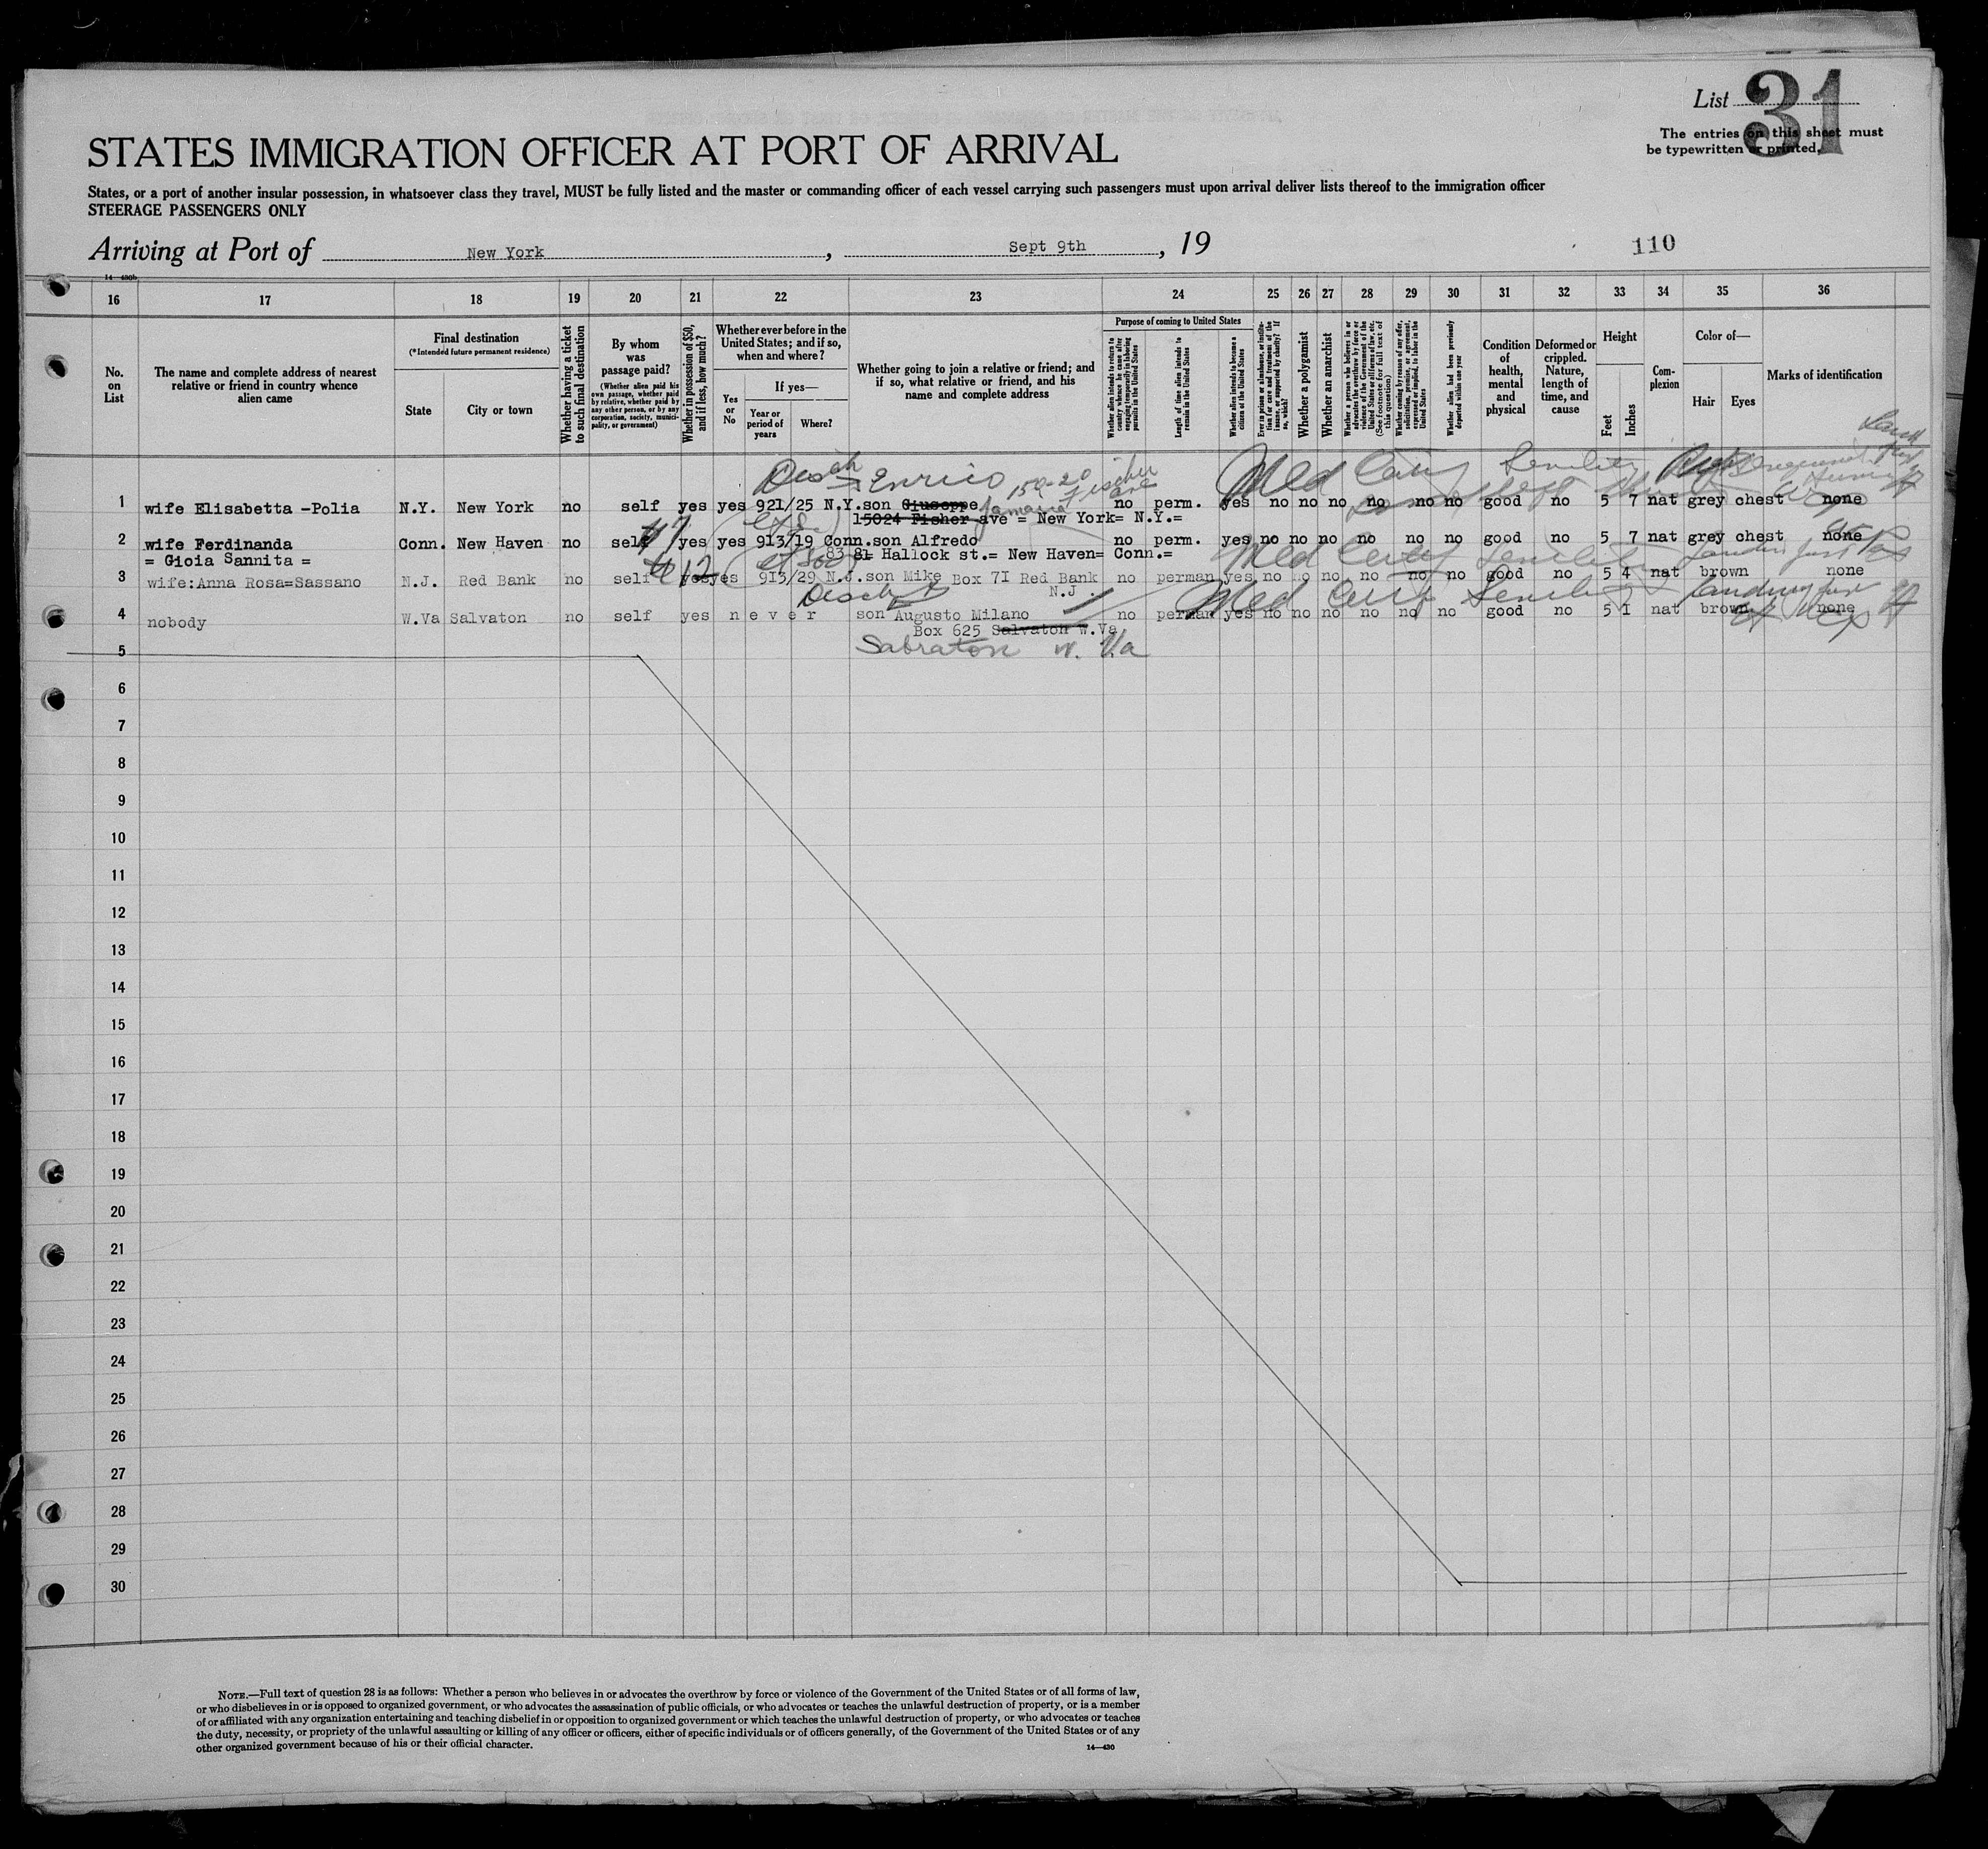 List 31
The entries on this sheet must
be typewritten or printed.
STATES IMMIGRATION OFFICER AT PORT OF ARRIVAL
States, or a port of another insular possession, in whatsoever class they travel, MUST be fully listed and the master or commanding officer of each vessel carrying such passengers must upon arrival deliver lists thereof to the immigration officer
STEERAGE PASSENGERS ONLY
Arriving at Port of New York, Sept 9th, 19
110
14—430b
16 17 18 19 20 21 22 23 24 25 26 27 28 29 30 31 32 33 34 35 36
No. on List
The name and complete address of nearest relative or friend in country whence alien came
Final destination
(*Intended future permanent residence)
State
City or town
Whether having a ticket to such final destination
By whom was passage paid?
(Whether alien paid his own passage, whether paid by relative, whether paid by any other person, or by any corporation, society, municipality, or government)
Whether in possession of $50, and if less, how much?
Whether ever before in the United States; and if so, when and where?
Yes or No
If yes—
Year or period of years
Where?
Whether going to join a relative or friend; and if so, what relative or friend, and his name and complete address
Purpose of coming to United States
Whether alien intends to return to country whence he came after engaging temporarily in laboring pursuits in the United States
Length of time alien intends to remain in the United States
Whether alien intends to become a citizen of the United States
Ever in prison or almshouse, or institution for care and treatment of the insane, or supported by charity? If so, which?
Whether a polygamist
Whether an anarchist
Whether a person who believes in or advocates the overthrow by force or violence of the Government of the United States or all forms of law, etc. (See footnote for full text of this question)
Whether coming by reason of any offer, solicitation, promise, or agreement, expressed or implied, to labor in the United States
Whether alien had been previously deported within one year
Condition of health, mental and physical
Deformed or crippled. Nature, length of time, and cause
Height
Feet
Inches
Complexion
Color of—
Hair
Eyes
Marks of identification
Disch Enrico 150-20 Fischer ave Jamaica Med Cert Senility
1 wife Elisabetta -Polia N.Y. New York no self yes yes 921/25 N.Y. son Giuseppe no perm. yes no no no no no no good no 5 7 nat grey chest none
15024 Fisher ave = New York= N.Y.=
2 wife Ferdinanda Conn. New Haven no self yes yes 913/19 Conn. son Alfredo no perm. yes no no no no no no good no 5 7 nat grey chest none
= Gioia Sannita = 83 81 Hallock st.= New Haven= Conn.=
Med Cert Senility
3 wife:Anna Rosa=Sassano N.J. Red Bank no self yes yes 915/29 N.J. son Mike Box 7I Red Bank no perman yes no no no no no no good no 5 4 nat brown none
N.J.
Disch Med Cert Senility
4 nobody W.Va Salvaton no self yes never son Augusto Milano no perman yes no no no no no no good no 5 I nat brown none
Box 625 Salvaton W.Va
Sabraton W. Va
5
6
7
8
9
10
11
12
13
14
15
16
17
18
19
20
21
22
23
24
25
26
27
28
29
30
NOTE.—Full text of question 28 is as follows: Whether a person who believes in or advocates the overthrow by force or violence of the Government of the United States or of all forms of law,
or who disbelieves in or is opposed to organized government, or who advocates the assassination of public officials, or who advocates or teaches the unlawful destruction of property, or is a member
of or affiliated with any organization entertaining and teaching disbelief in or opposition to organized government or which teaches the unlawful destruction of property, or who advocates or teaches
the duty, necessity, or propriety of the unlawful assaulting or killing of any officer or officers, either of specific individuals or of officers generally, of the Government of the United States or of any
other organized government because of his or their official character.
14—430